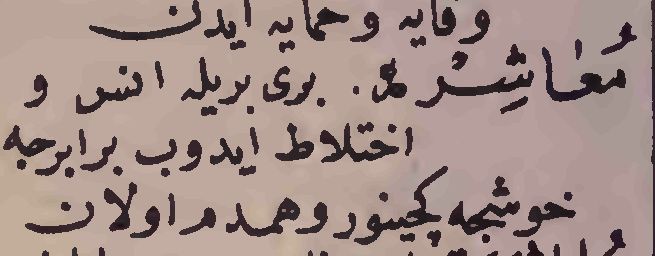 وقايه وحمايه ايدن
مُعَاشِرْ عر. بری بریله انس و
اختلاط ایدوب برابرجه
خوشجه کچینور و همدم اولان